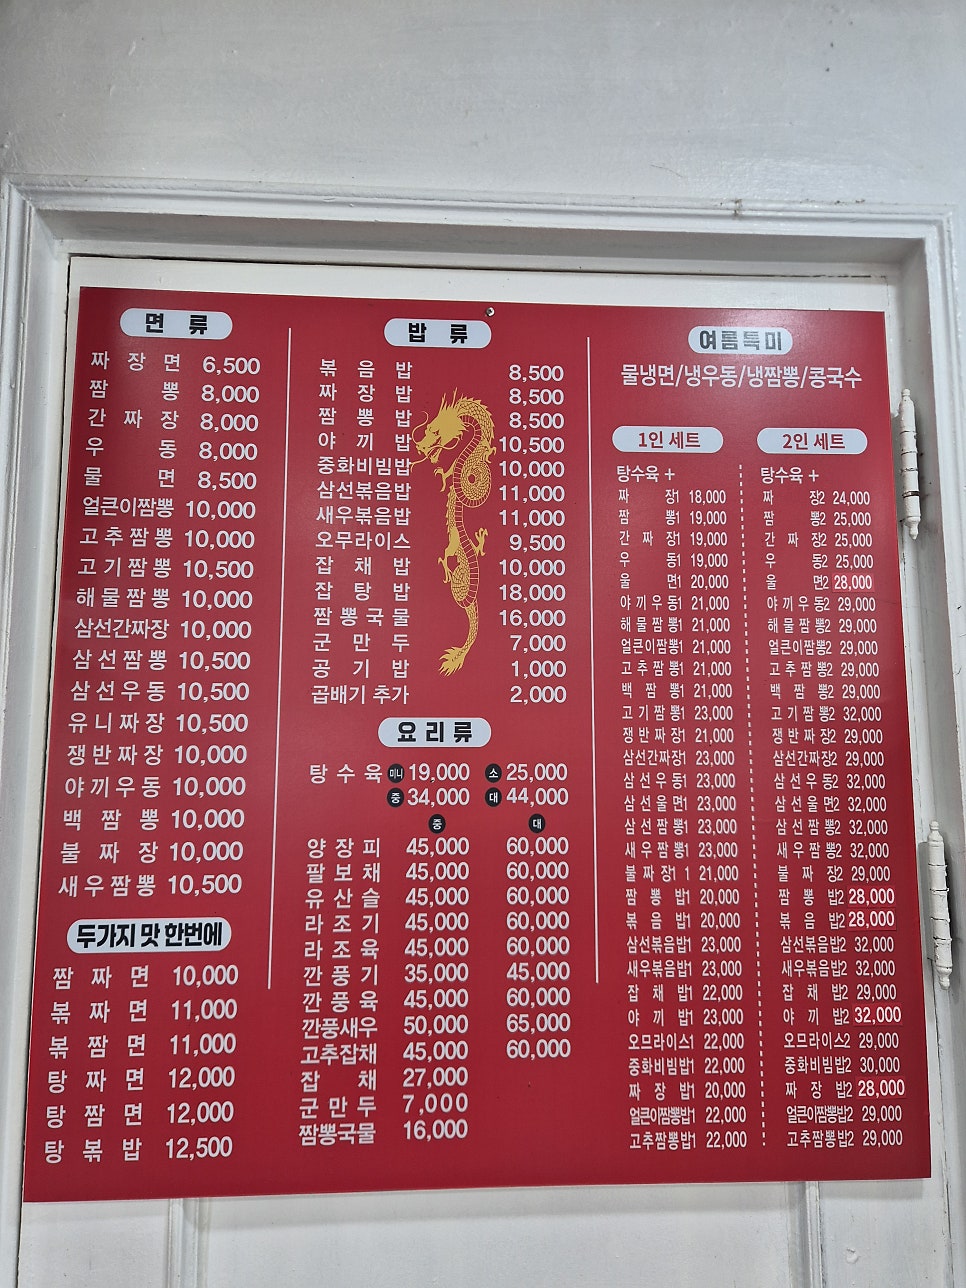 면 류
짜 장 면 6,500
짬 뽕 8,000
간 짜 장 8,000
우 동 8,000
물 면 8,500
얼큰이짬뽕 10,000
고추짬뽕 10,000
고기짬뽕 10,500
해물짬뽕 10,000
삼선간짜장 10,000
삼선짬뽕 10,500
삼선우동 10,500
유니짜장 10,500
쟁반짜장 10,000
야끼우동 10,000
백 짬 뽕 10,000
불 짜 장 10,000
새우짬뽕 10,500
두가지 맛 한번에
짬 짜 면 10,000
볶 짜 면 11,000
볶 짬 면 11,000
탕 짜 면 12,000
탕 짬 면 12,000
탕 볶 밥 12,500
밥 류
볶 음 밥 8,500
짜 장 밥 8,500
짬 뽕 밥 8,500
야 끼 밥 10,500
중화비빔밥 10,000
삼선볶음밥 11,000
새우볶음밥 11,000
오무라이스 9,500
잡 채 밥 10,000
잡 탕 밥 18,000
짬뽕국물 16,000
군 만 두 7,000
공 기 밥 1,000
곱배기 추가 2,000
요 리 류
탕 수 육 미니 19,000 소 25,000
중 34,000 대 44,000
중 대
양 장 피 45,000 60,000
팔 보 채 45,000 60,000
유 산 슬 45,000 60,000
라 조 기 45,000 60,000
라 조 육 45,000 60,000
깐 풍 기 35,000 45,000
깐 풍 육 45,000 60,000
깐풍새우 50,000 65,000
고추잡채 45,000 60,000
잡 채 27,000
군 만 두 7,000
짬뽕국물 16,000
여름특미
물냉면/냉우동/냉짬뽕/콩국수
1인 세트
탕수육 +
짜 장1 18,000
짬 뽕1 19,000
간 짜 장1 19,000
우 동1 19,000
울 면1 20,000
야끼우동1 21,000
해물짬뽕1 21,000
얼큰이짬뽕1 21,000
고추짬뽕1 21,000
백 짬 뽕1 21,000
고기짬뽕1 23,000
쟁반짜장1 21,000
삼선간짜장1 23,000
삼선우동1 23,000
삼선울면1 23,000
삼선짬뽕1 23,000
새우짬뽕1 23,000
불짜장1 1 21,000
짬 뽕 밥1 20,000
볶 음 밥1 20,000
삼선볶음밥1 23,000
새우볶음밥1 23,000
잡 채 밥1 22,000
야 끼 밥1 23,000
오므라이스1 22,000
중화비빔밥1 22,000
짜 장 밥1 20,000
얼큰이짬뽕밥1 22,000
고추짬뽕밥1 22,000
2인 세트
탕수육 +
짜 장2 24,000
짬 뽕2 25,000
간 짜 장2 25,000
우 동2 25,000
울 면2 28,000
야끼우동2 29,000
해물짬뽕2 29,000
얼큰이짬뽕2 29,000
고추짬뽕2 29,000
백 짬 뽕2 29,000
고기짬뽕2 32,000
쟁반짜장2 29,000
삼선간짜장2 29,000
삼선우동2 32,000
삼선울면2 32,000
삼선짬뽕2 32,000
새우짬뽕2 32,000
불 짜 장2 29,000
짬 뽕 밥2 28,000
볶 음 밥2 28,000
삼선볶음밥2 32,000
새우볶음밥2 32,000
잡 채 밥2 29,000
야 끼 밥2 32,000
오므라이스2 29,000
중화비빔밥2 30,000
짜 장 밥2 28,000
얼큰이짬뽕밥2 29,000
고추짬뽕밥2 29,000